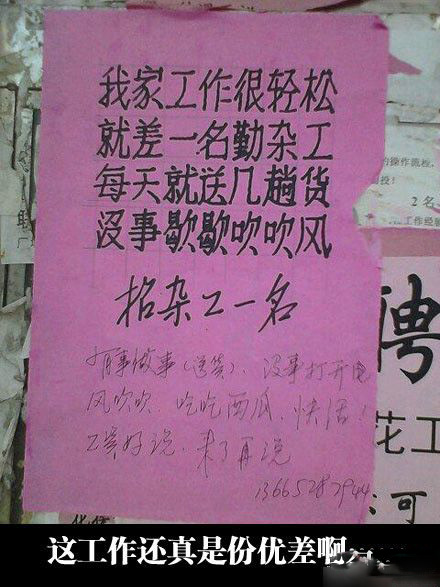 我家工作很轻松
就差一名勤杂工
每天就送几趟货
没事歇歇吹吹风
招杂工一名
有事做事(送货)、没事打开电
风吹吹、吃吃西瓜、快活!
工资好说、来了再说
13665287944
的操作流程,
投!
2名
工作经验
聘
花工
可
这工作还真是份优差啊